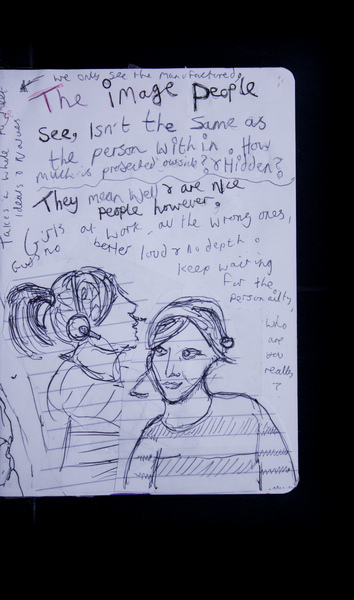 we only see the manufactured.
The image people
see, Isn't the same as
the person within. How
much is projected outside? & Hidden?
They mean well & are nice
people however,
Girls at work, all the wrong ones,
Guys no better loud & no depth.
keep waiting
for the
personality,
who
are
you
really
?
Takes a while
ideals & values